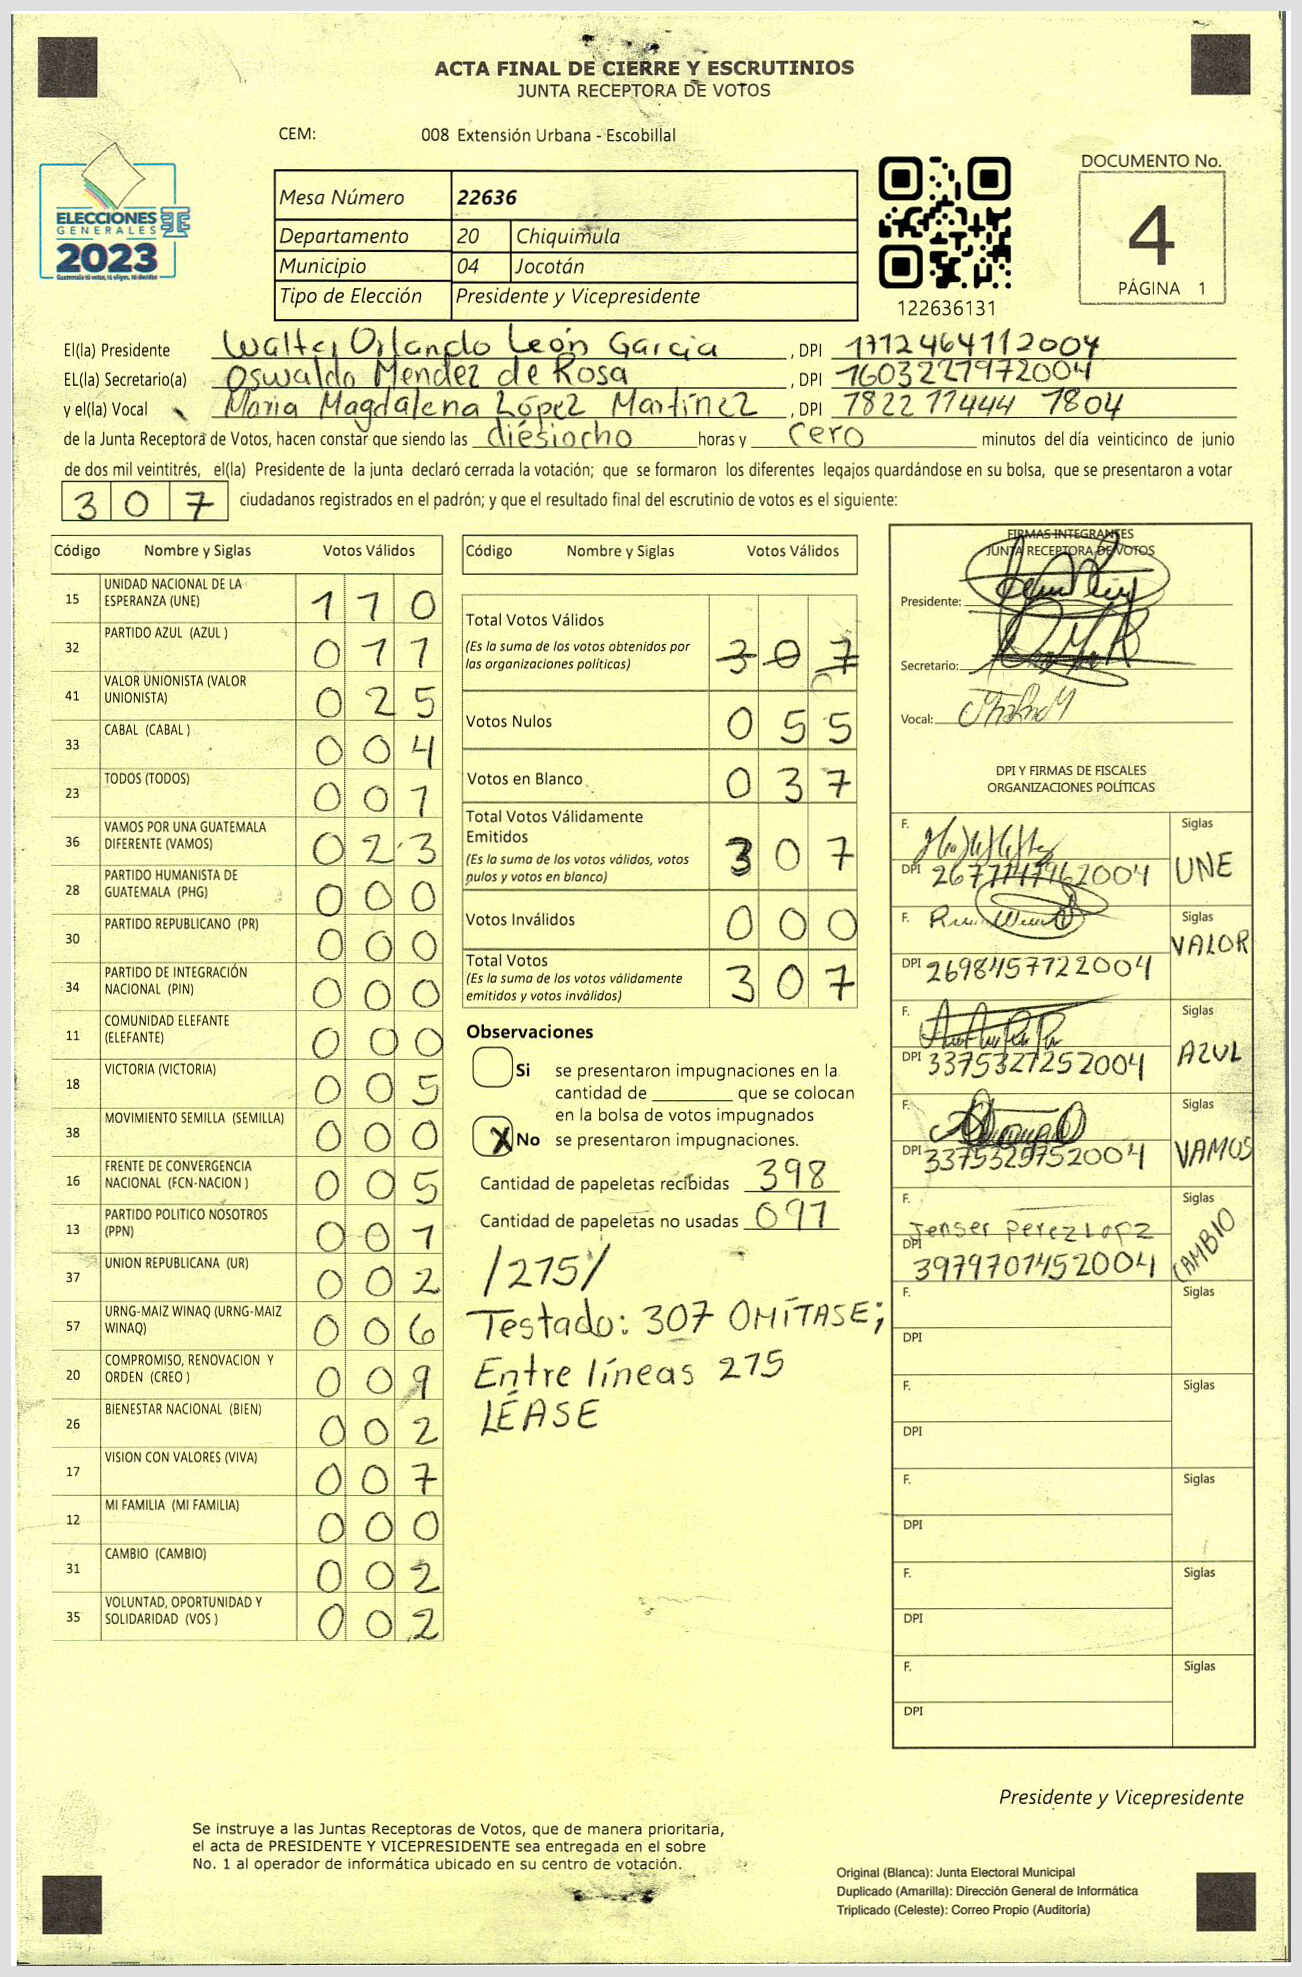 ACTA FINAL DE CIERRE Y ESCRUTINIOS
JUNTA RECEPTORA DE VOTOS
CEM: 008 Extensión Urbana - Escobillal
ELECCIONES
GENERALES
2023
Mesa Número 22636
Departamento 20 Chiquimula
Municipio 04 Jocotán
Tipo de Elección Presidente y Vicepresidente
122636131
DOCUMENTO No.
4
PÁGINA 1
El(la) Presidente Walter Orlando León Garcia , DPI 1712464112004
EL(la) Secretario(a) Oswaldo Mendez de Rosa , DPI 1603221972004
y el(la) Vocal Maria Magdalena López Martínez , DPI 7822 11444 1804
de la Junta Receptora de Votos, hacen constar que siendo las diésiocho horas y cero minutos del día veinticinco de junio
de dos mil veintitrés, el(la) Presidente de la junta declaró cerrada la votación; que se formaron los diferentes legajos quardándose en su bolsa, que se presentaron a votar
307 ciudadanos registrados en el padrón; y que el resultado final del escrutinio de votos es el siguiente:
Código Nombre y Siglas Votos Válidos
15 UNIDAD NACIONAL DE LA ESPERANZA (UNE) 110
32 PARTIDO AZUL (AZUL ) 071
41 VALOR UNIONISTA (VALOR UNIONISTA) 025
33 CABAL (CABAL ) 004
23 TODOS (TODOS) 001
36 VAMOS POR UNA GUATEMALA DIFERENTE (VAMOS) 023
28 PARTIDO HUMANISTA DE GUATEMALA (PHG) 000
30 PARTIDO REPUBLICANO (PR) 000
34 PARTIDO DE INTEGRACIÓN NACIONAL (PIN) 000
11 COMUNIDAD ELEFANTE (ELEFANTE) 000
18 VICTORIA (VICTORIA) 005
38 MOVIMIENTO SEMILLA (SEMILLA) 000
16 FRENTE DE CONVERGENCIA NACIONAL (FCN-NACION ) 005
13 PARTIDO POLITICO NOSOTROS (PPN) 001
37 UNION REPUBLICANA (UR) 002
57 URNG-MAIZ WINAQ (URNG-MAIZ WINAQ) 006
20 COMPROMISO, RENOVACION Y ORDEN (CREO ) 009
26 BIENESTAR NACIONAL (BIEN) 002
17 VISION CON VALORES (VIVA) 007
12 MI FAMILIA (MI FAMILIA) 000
31 CAMBIO (CAMBIO) 002
35 VOLUNTAD, OPORTUNIDAD Y SOLIDARIDAD (VOS ) 002
Código Nombre y Siglas Votos Válidos
Total Votos Válidos 307
(Es la suma de los votos obtenidos por
las organizaciones políticas)
Votos Nulos 055
Votos en Blanco 037
Total Votos Válidamente
Emitidos 307
(Es la suma de los votos válidos, votos
nulos y votos en blanco)
Votos Inválidos 000
Total Votos 307
(Es la suma de los votos válidamente
emitidos y votos inválidos)
Observaciones
Si se presentaron impugnaciones en la
cantidad de ________ que se colocan
en la bolsa de votos impugnados
X No se presentaron impugnaciones.
Cantidad de papeletas recibidas 398
Cantidad de papeletas no usadas 091
/275/
Testado: 307 OMÍTASE;
Entre líneas 275
LÉASE
FIRMAS INTEGRANTES
JUNTA RECEPTORA DE VOTOS
Presidente:
Secretario:
Vocal:
DPI Y FIRMAS DE FISCALES
ORGANIZACIONES POLÍTICAS
F. Siglas
DPI UNE
F. Siglas
VALOR
DPI 2698457722004
F. Siglas
DPI 3375327252004 AZUL
F. Siglas
DPI 3375329752004 VAMOS
F. Siglas
Jenser Perez Lopz CAMBIO
DPI 3979701452004
F. Siglas
DPI
F. Siglas
DPI
F. Siglas
DPI
F. Siglas
DPI
F. Siglas
DPI
Presidente y Vicepresidente
Se instruye a las Juntas Receptoras de Votos, que de manera prioritaria,
el acta de PRESIDENTE Y VICEPRESIDENTE sea entregada en el sobre
No. 1 al operador de informática ubicado en su centro de votación.
Original (Blanca): Junta Electoral Municipal
Duplicado (Amarilla): Dirección General de Informática
Triplicado (Celeste): Correo Propio (Auditoría)